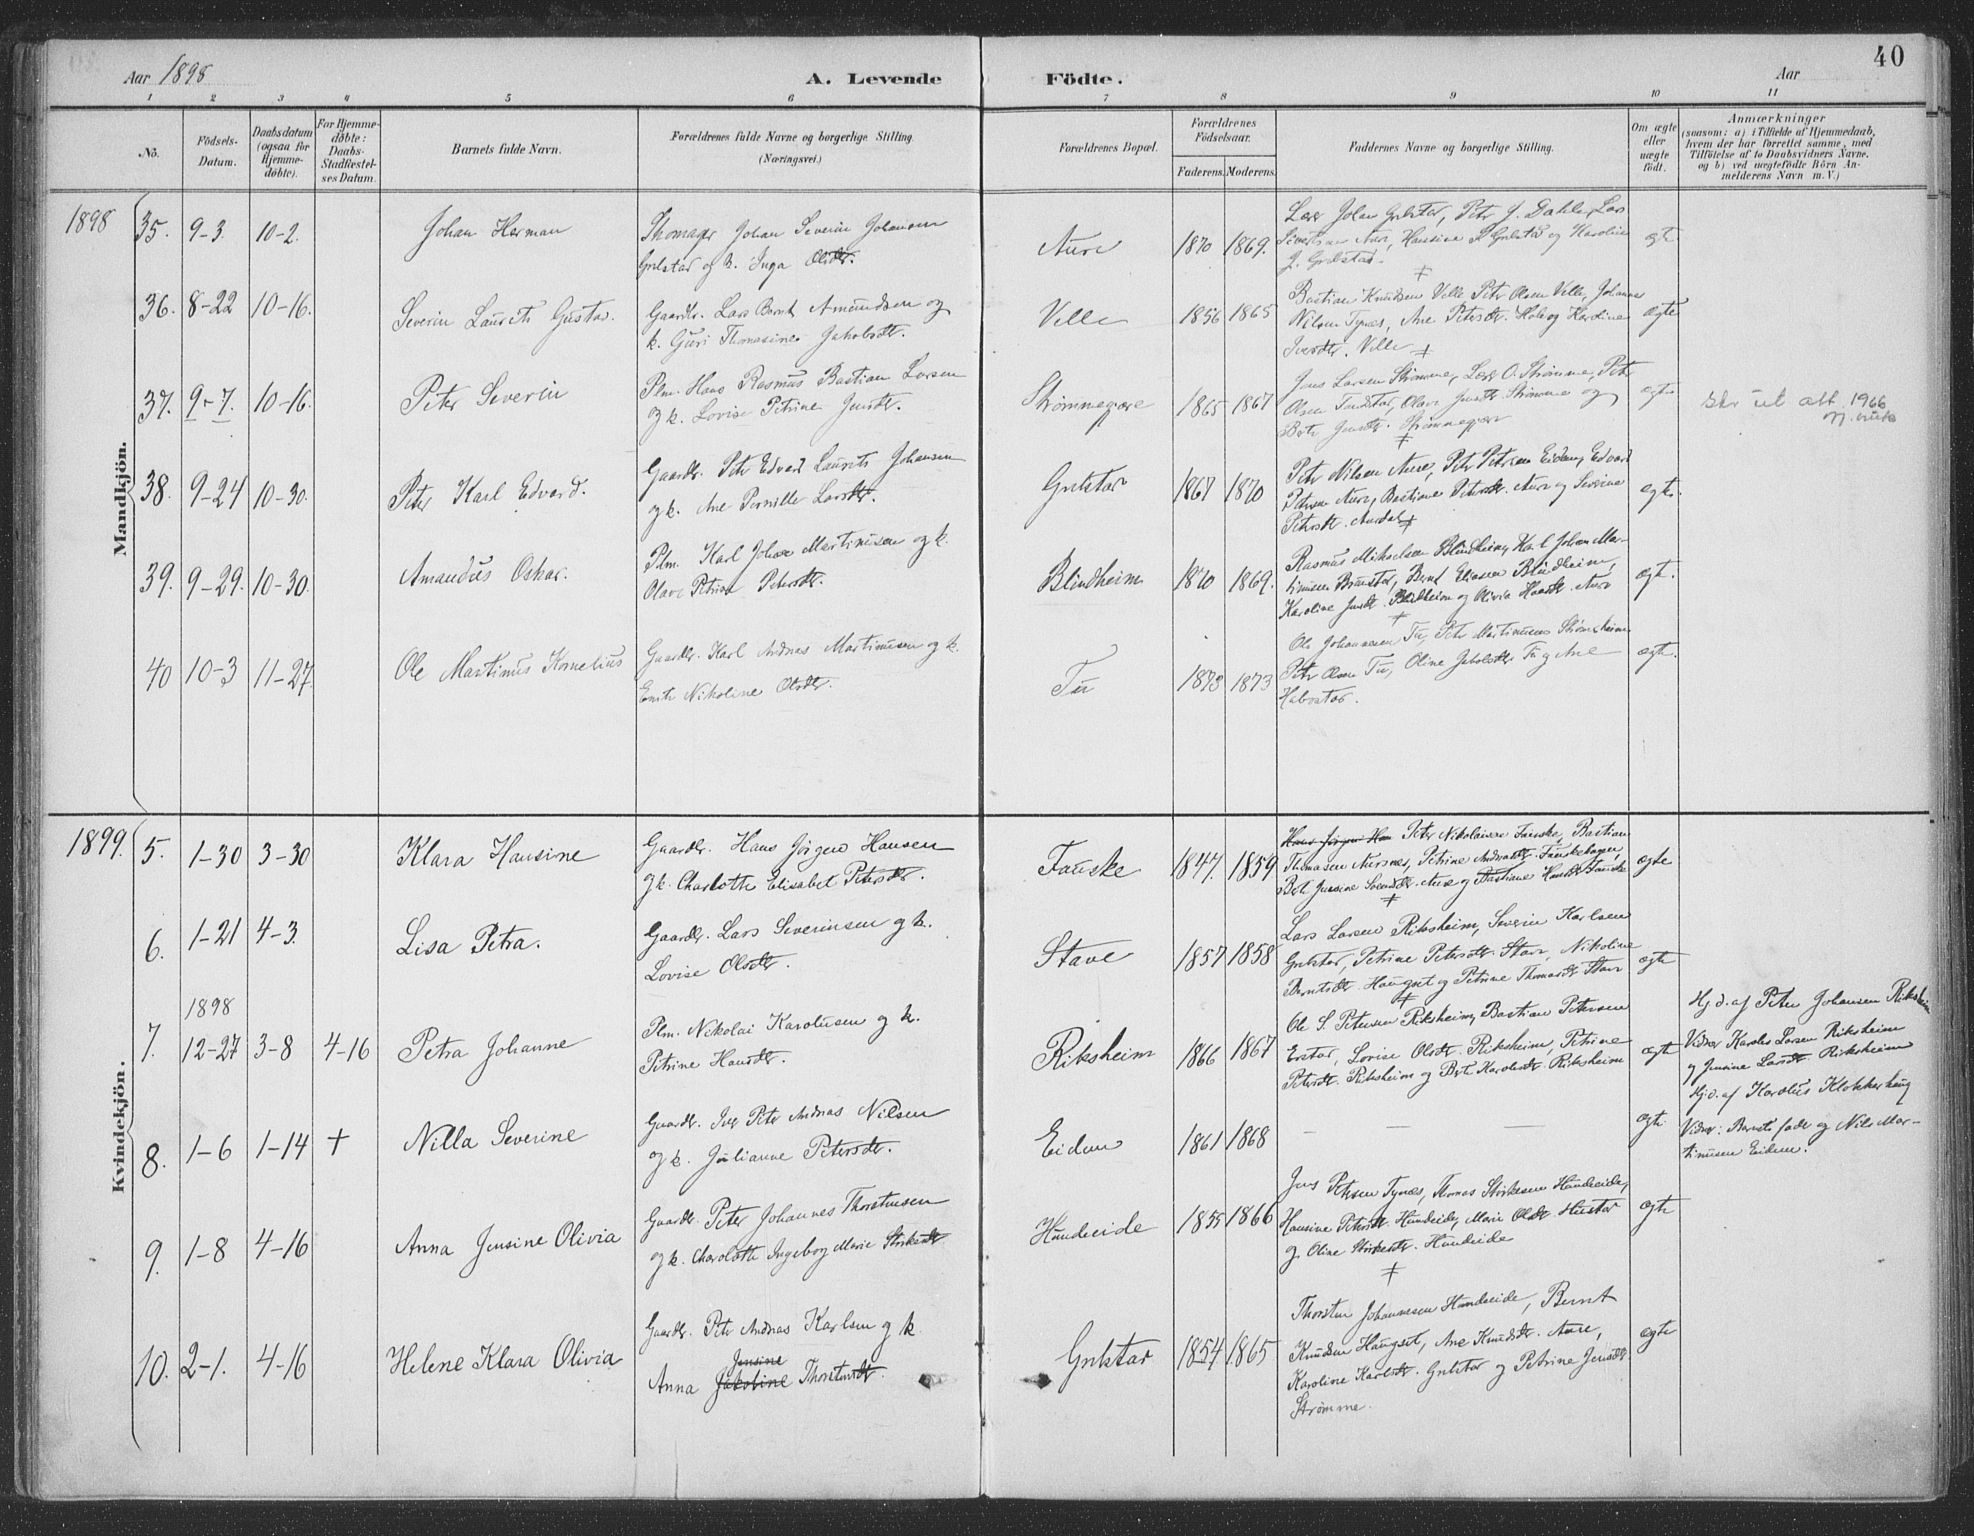 40
Aar 1898
A. Levende
Födte.
Aar
1 2 3 4 5 6 7 8 9 10 11
No.
Födsels-
Datum.
Daabsdatum
(ogsaa for
Hjemme-
döbte).
For Hjemme-
döbte:
Daabs-
Stadfæstel-
ses Datum.
Barnets fulde Navn.
Forældrenes fulde Navne og borgerlige Stilling.
(Næringsvei.)
Forældrenes Bopæl.
Forældrenes
Födselsaar.
Faderens. Moderens.
Faddernes Navne og borgerlige Stilling.
Om ægte
eller
uægte
födt.
Anmærkninger
(saasom: a) i Tilfælde af Hjemmedaab,
hvem der har forrettet samme, med
Tilföielse af to Daabsvidners Navne,
og b) ved uægtefödte Börn An-
melderens Navn m. V.)
Mandkjön.
1898
35. 9-3. 10-2. Johan Herman
Johan Severin Johansen
Gretstad og k. Inga Olsdtr.
Aure 1870 1869.
ægte
36. 8-22 10-16. Severin Laurits Gustav.
Gaardbr. Lars Bernt Amundsen og
k. Guri Thomasine Jakobsdtr.
Velle 1856 1865
Bastian Knudsen Velle, Peter Olsen Velle, Johanne
Nilsen Tynes, Ane Petersdtr. og Karoline
Iversdtr. Velle
ægte
37. 9-7. 10-16. Peter Severin
Plm. Hans Rasmus Bastian Larsen
og k. Lovise Petrine Jensdtr.
Strømmegjære 1865 1867
Jens Larsen Strømme, O. Strømme, Peter
Olsen Tandstad, Jensdtr. Strømme og
Berte Jensdtr. Strømmegjære
ægte
skr ut att. 1966
38. 9-24 10-30. Peter Karl Edvard.
Gaardbr. Petr Edvard Laurits Johansen
og k. Ane Pernille Larsdtr.
1867 1870
Petr Nilsen Aure, Petr Petersen Eidem, Edvard
Petersen Aure, Bastiane Petersdtr. Aure og Severine
Petersdtr. Aurdal
ægte.
39. 9-29. 10-30. Amandus Oskar.
Plm. Karl Johan Martinusen og k.
Olave Petrine Petersdtr.
Blindheim 1870 1869.
Rasmus Mikaelsen Blindheim, Karl Johan Mar-
tinusen Brunstad, Bernt Eliasen Blindheim,
Karoline Jensdtr. Blindheim og Olivia Hansdtr. Aure
ægte.
40 10-3 11-27. Ole Martinus Kornelius
Gaardbr. Karl Andreas Martinusen og k.
Nikoline Olsdtr.
Tu 1873 1873
Ole Johannesen Tu, Petr Martinusen Strømsheim
Petr Olsen Tu, Oline Jakobsdtr. Tu og Ane
ægte.
Kvindekjön.
1899.
5. 1-30 3-30 Klara Hansine
Gaardbr. Hans Jørgen Hansen
og k. Charlotte Elisabet Petersdtr.
Fauske 1847. 1859.
Petr Nikolaisen Fauske, Bastian
Thomasen Aursnes, Petrine Andreasdtr. Fauskehagen,
Berte Jensine Aure og Bastiane Hansdtr. Fauske
ægte
6. 1-21 4-3. Lisa Petra.
Gaardbr. Lars Severinsen og k.
Lovise Olsdtr.
Stave 1857 1858
Lars Larsen Riksheim, Severin Karlsen
Petrine Petersdtr. Stave, Nikoline
Berntsdtr. Haugset og Petrine Thomasdtr. Stave
ægte
1898
7. 12-27 3-8 4-16 Petra Johanne
Plm. Nikolai Karolusen og k.
Petrine Hansdtr.
Riksheim 1866 1867
Ole S. Petersen Riksheim, Bastian Petersen
Erstad, Lovise Olsdtr. Riksheim, Petrine
Petersdtr. Riksheim og Berte Karolusdtr. Riksheim
ægte
Hj.d. af Peter Johansen Riksheim
Vidner Karolus Larsen Riksheim
og Jensine Larsdtr. Riksheim
8. 1-6 1-14 + Nilla Severine
Gaardbr. Iver Peter Andreas Nilsen
og k. Julianne Petersdtr.
Eidem 1861 1868
— — —
ægte
Hj.d. af Karolus Klokkerhaug
Vidner: Barnets fader og Nils Mar-
tinusen Eidem.
9. 1-8 4-16 Anna Jensine Olivia
Gaardbr. Peter Johannes Thorstensen
og k. Charlotte Ingeborg Marie Størkersdtr.
Hundeide 1855 1866
Jens Petersen Tynes, Thomas Størkersen Hundeide,
Hansine Petersdtr. Hundeide, Marie Olsdtr. Hustad
og Oline Størkersdtr. Hundeide
ægte
10. 2-1. 4-16 Helene Klara Olivia
Gaardbr. Petr Andreas Karlsen og k.
Jensine
Anna Jakobine Thorstensdtr.
1854 1865
Thorsten Johannesen Hundeide, Bernt
Knudsen Haugset, Ane Knudsdtr. Aure,
Karoline Karlsdtr. og Petrine Jensdtr.
Strømme.
ægte